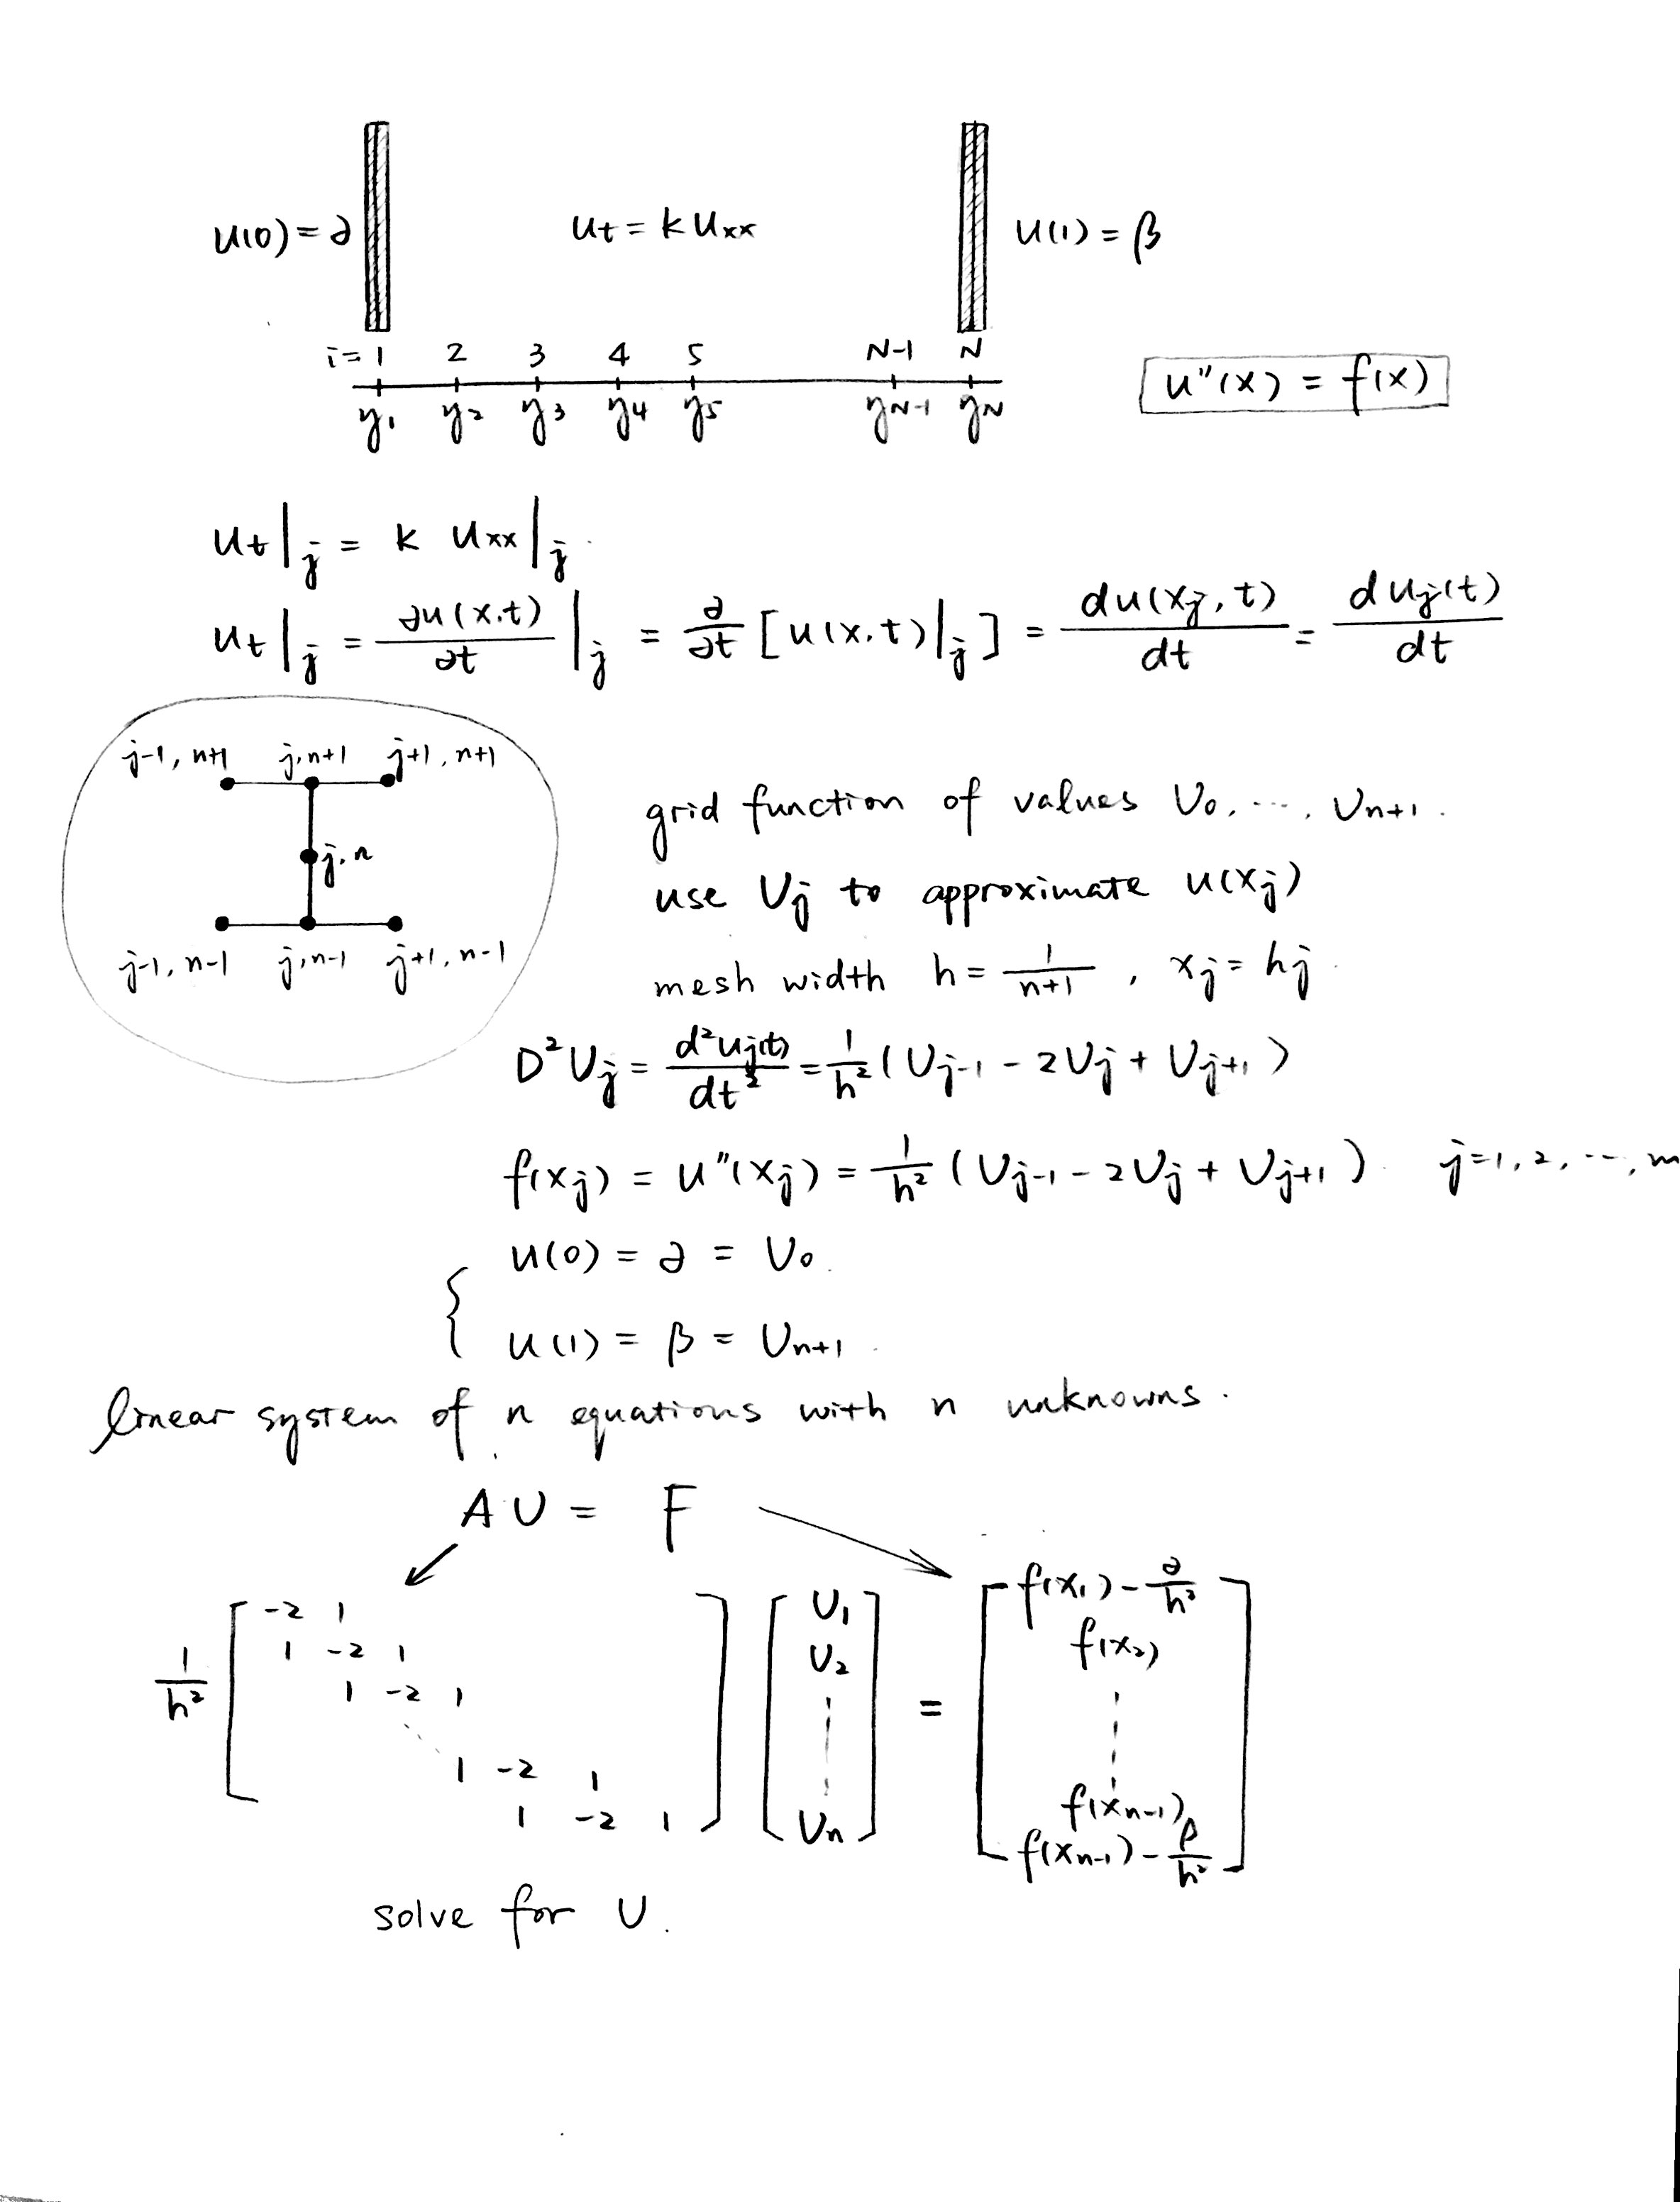 u(0) = ∂ u_t = k u_xx u(1) = β
i = 1 2 3 4 5 N-1 N
y_1 y_2 y_3 y_4 y_5 y_N-1 y_N
u"(x) = f(x)
u_t|_j = k u_xx|_j
u_t|_j = ∂u(x,t)/∂t |_j = ∂/∂t [u(x,t)|_j] = du(x_j, t)/dt = du_j(t)/dt
j-1, n+1 j,n+1 j+1, n+1
j,n
j-1, n-1 j,n-1 j+1, n-1
grid function of values U_0, ..., U_n+1.
use U_j to approximate u(x_j)
mesh width h = 1/n+1 , x_j = hj
D²U_j = d²u_j(t)/dt² = 1/h² (U_j-1 - 2U_j + U_j+1)
f(x_j) = u"(x_j) = 1/h² (U_j-1 - 2U_j + U_j+1) j=1, 2, ..., m
{ u(0) = ∂ = U_0.
u(1) = β = U_n+1.
linear system of n equations with n unknowns.
A U = F
1/h² [ -2 1
1 -2 1
1 -2 1
1 -2 1
1 -2 1 ]
[ U_1
U_2
U_n ]
= [ f(x_1) - ∂/h²
f(x_2)
f(x_n-1)
f(x_n-1) - β/h² ]
solve for U.